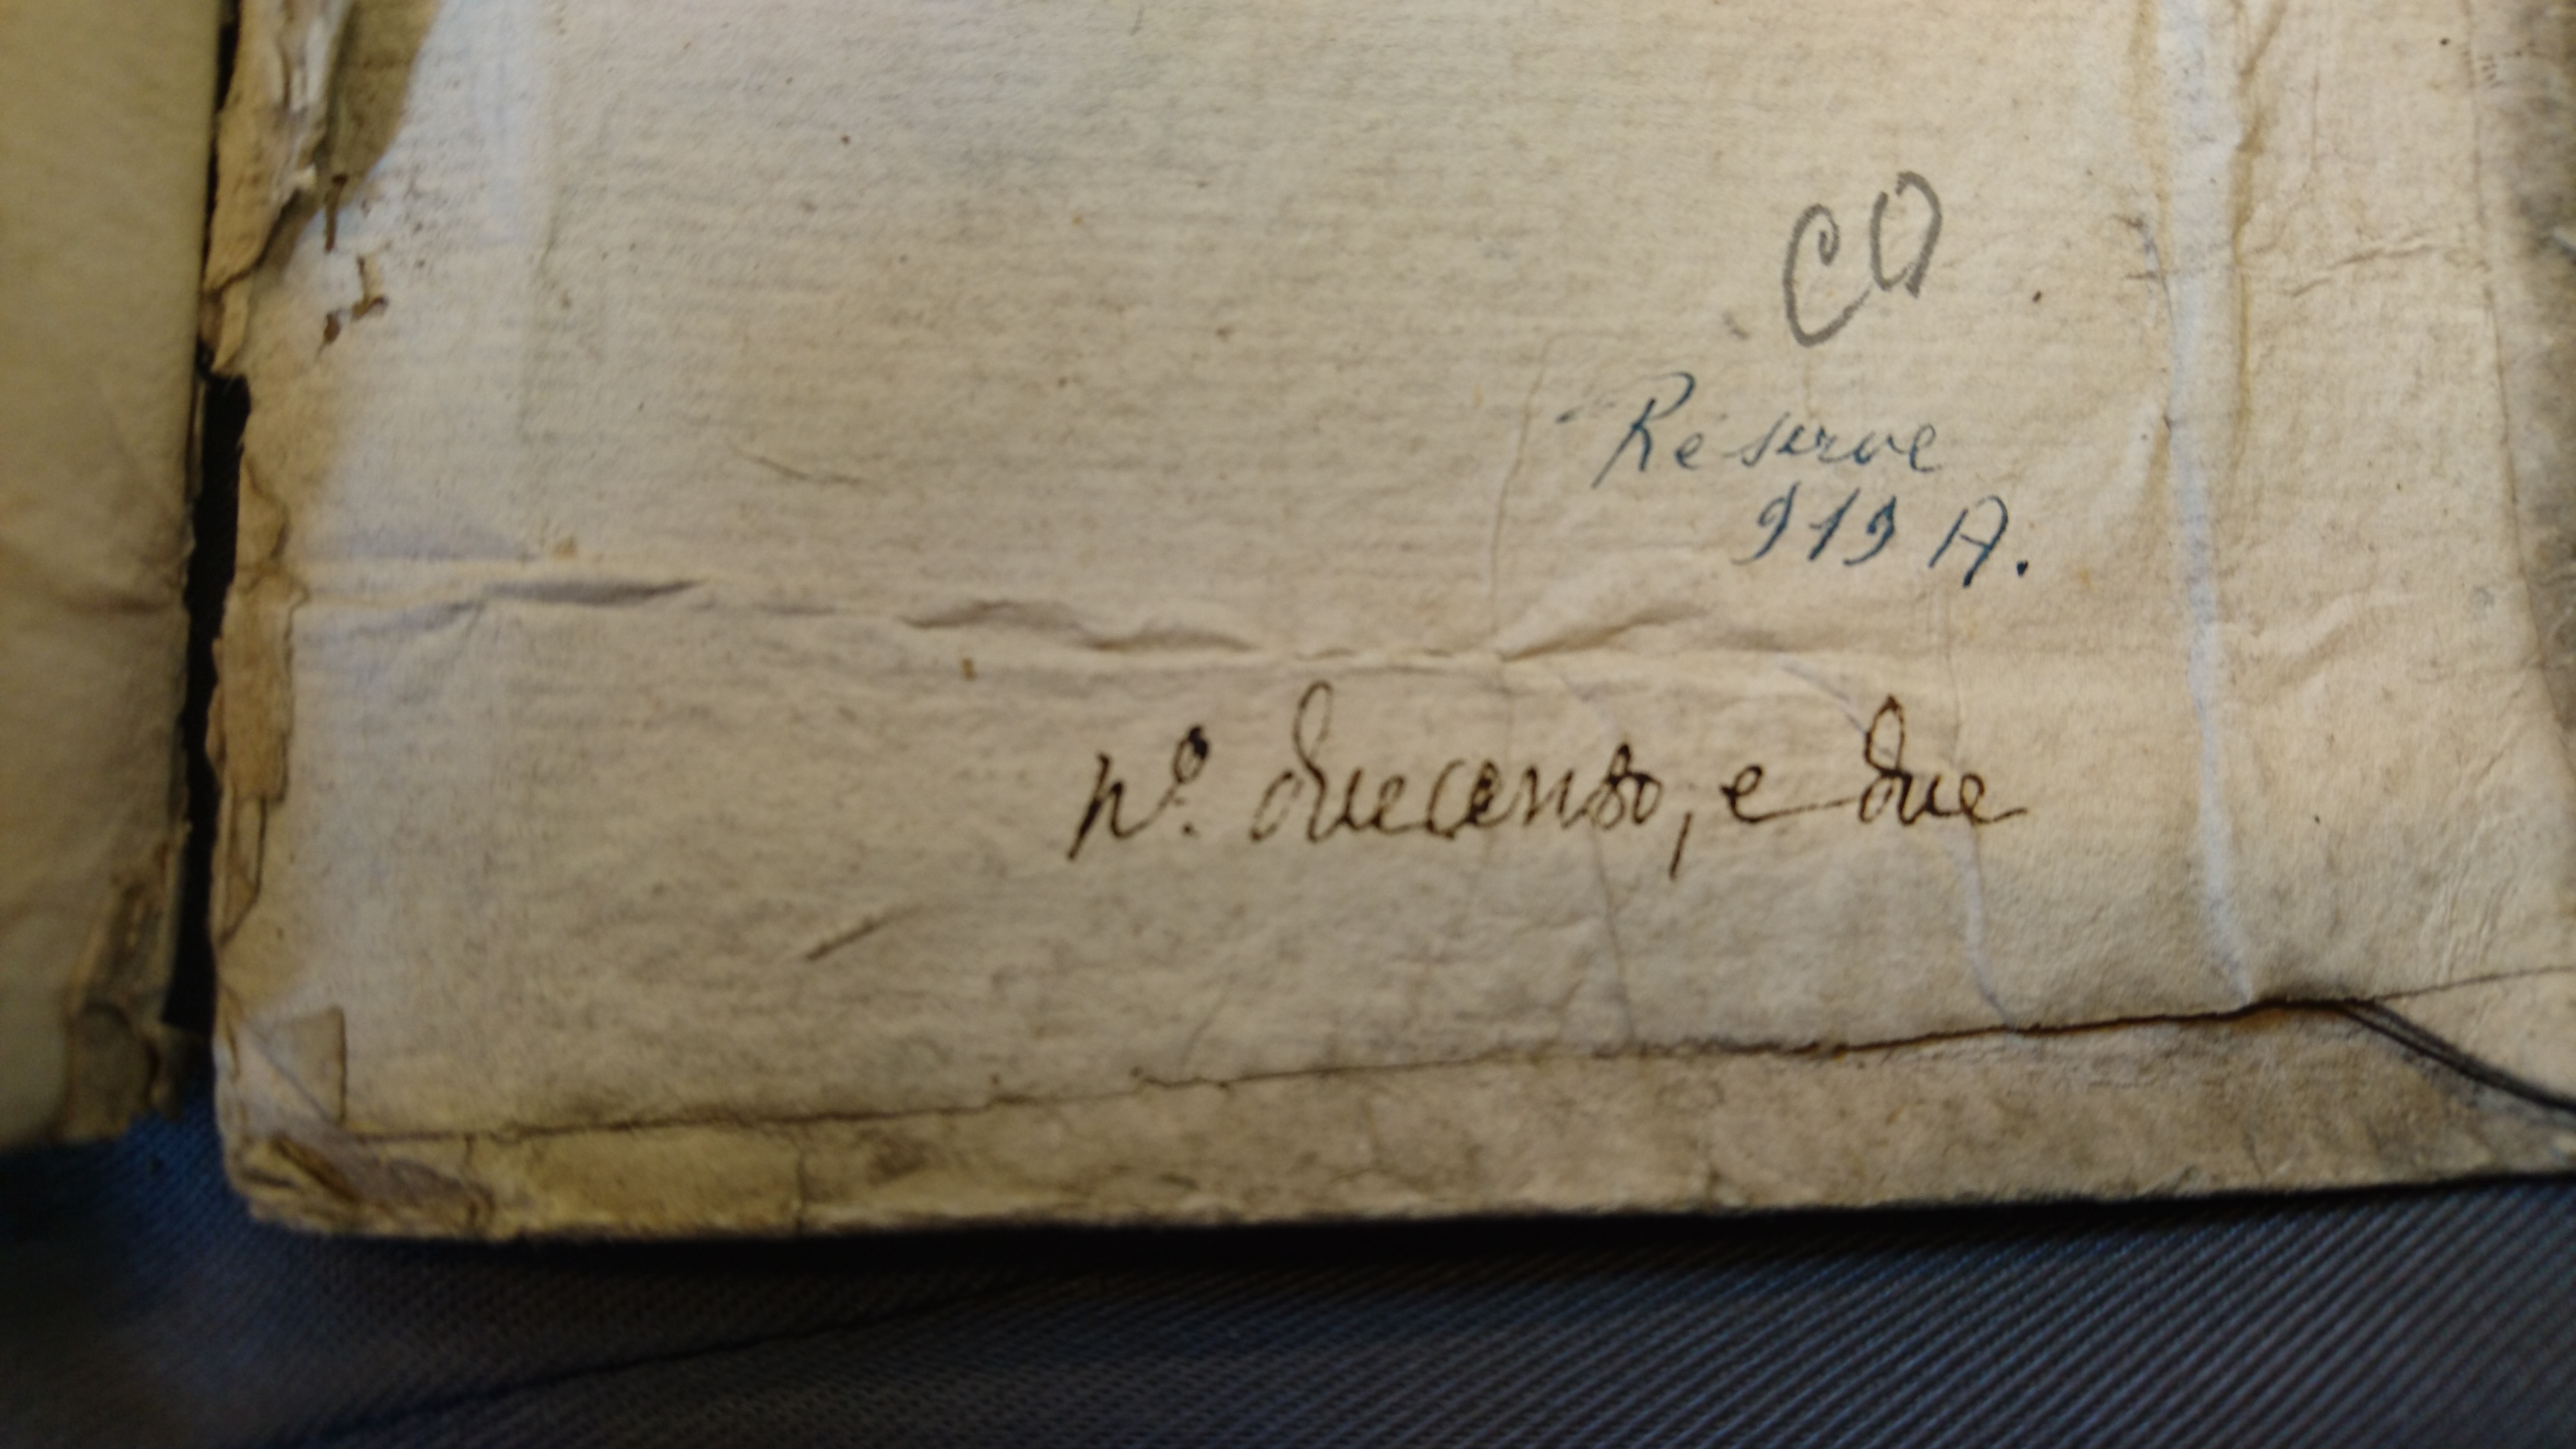 CO
Réserve
919 A.
nº. ducento, e due